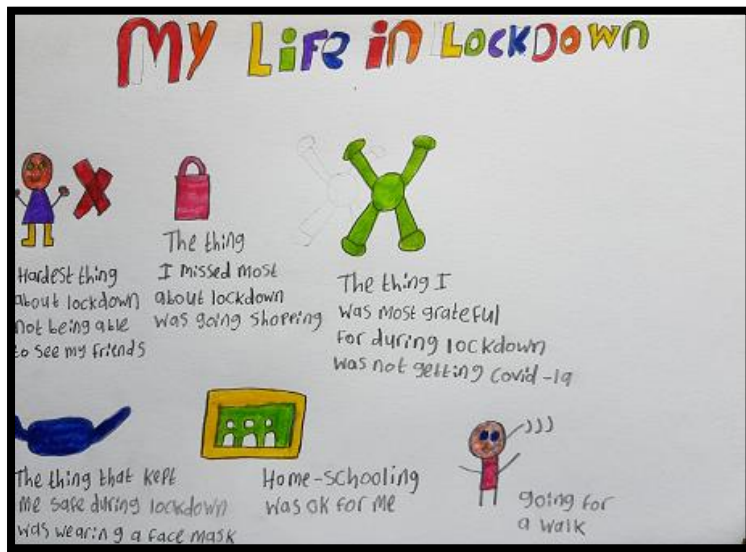 My Life in Lockdown
Hardest thing
about lockdown
not being able
to see my friends
The thing
I missed most
about lockdown
was going shopping
The thing I
was most grateful
for during lockdown
was not getting covid-19
The thing that kept
me safe during lockdown
was wearing a face mask
Home-schooling
was ok for me
going for
a walk